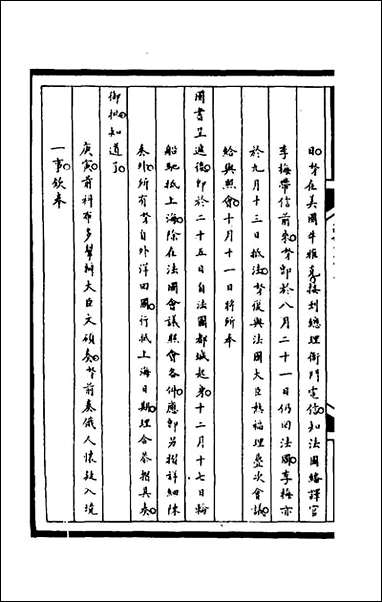 日努在美國牛雅奚接到總理衙門電信知法國繙譯官
李梅帶信前來努即於八月二十一日仍回法國李梅亦
於九月十三日抵法努復與法國大臣熱福理疊次會議
給與照會十月十一日將所奉
國書呈遞後即於二十五日自法國都城起來十二月十七日輪
船馳抵上海除在法國會議照會各件應即另摺詳細陳
奏外所有努自外洋回國行抵上海日期理合恭摺具奏
御批知道了
庚寅前科布多幫辦大臣文碩奏努前奏俄人懷疑入境
一事欽奉